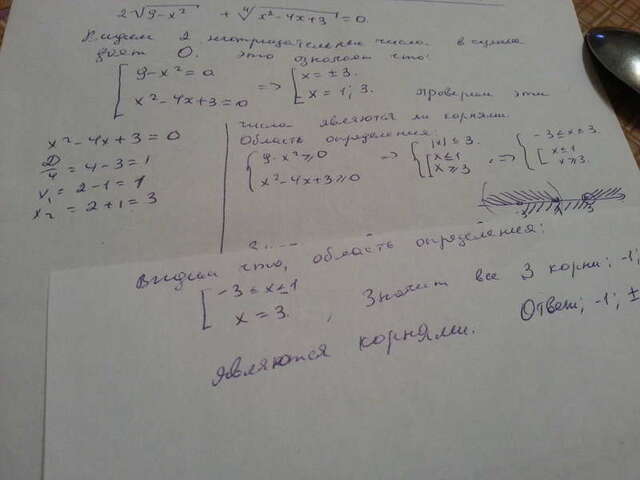 2√(9-x²) + ⁴√(x²-4x+3) = 0.
Видим 2 неотрицательных числа в сумме
дает 0. Это означает что:
[ 9-x² = 0
[ x²-4x+3=0
=> [ x = ±3.
[ x = 1; 3.
Проверим эти
числа являются ли корнями.
x²-4x+3=0
D/4 = 4-3=1
x₁ = 2-1=1
x₂ = 2+1=3
Область определения:
{ 9-x² ≥ 0
{ x²-4x+3 ≥ 0
=> { |x| ≤ 3.
{ [ x ≤ 1
[ x ≥ 3
, => { -3 ≤ x ≤ 3.
{ [ x ≤ 1
[ x ≥ 3.
-3 1 3
Видим что, область определения:
[ -3 ≤ x ≤ 1
[ x = 3.
, Значит все 3 корни: -1;
являются корнями. Ответ: -1; ±